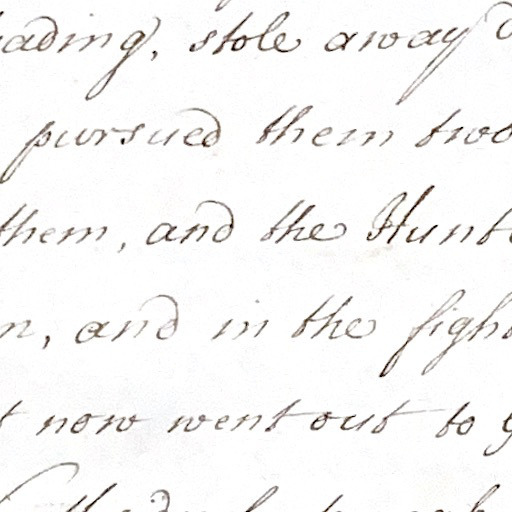 ading, stole away
pursued them two
them, and the Hunt
n, and in the figh
t now went out to g